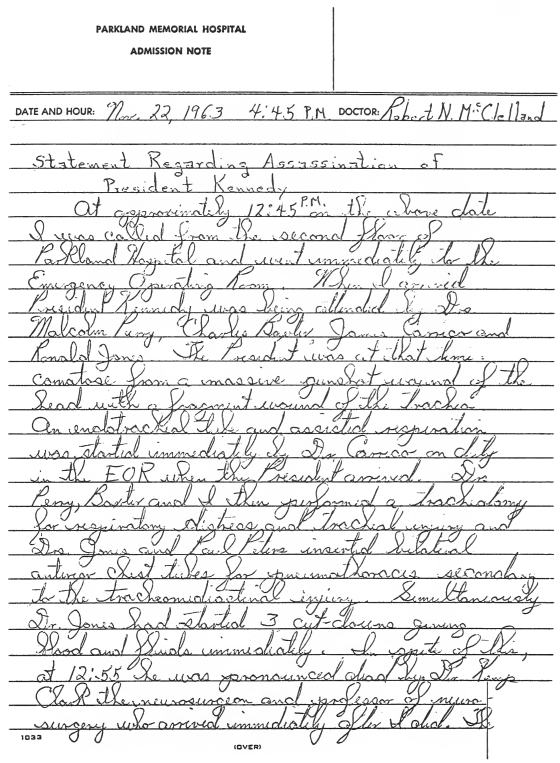 PARKLAND MEMORIAL HOSPITAL
ADMISSION NOTE
DATE AND HOUR: Nov. 22, 1963 4:45 P.M. DOCTOR: Robert N. McClelland
Statement Regarding Assassination of
President Kennedy
At approximately 12:45 P.M. on the above date
I was called from the second floor of
Parkland Hospital and went immediately to the
Emergency Operating Room. When I arrived
President Kennedy was being attended by Drs
Malcolm Perry, Charles Baxter, James Carrico and
Ronald Jones. The President was at that time
comatose from a massive gunshot wound of the
head with a fragment wound of the trachea.
An endotracheal tube and assisted respiration
was started immediately by Dr. Carrico on duty
in the EOR when the President arrived. Drs.
Perry, Baxter and I then performed a tracheotomy
for respiratory distress and tracheal injury and
Drs. Jones and Paul Peters inserted bilateral
anterior chest tubes for pneumothoracis secondary
to the tracheomediastinal injury. Simultaneously
Dr. Jones had started 3 cut-downs giving
blood and fluids immediately. In spite of this,
at 12:55 he was pronounced dead by Dr. Kemp
Clark the neurosurgeon and professor of neuro-
surgery who arrived immediately after I did. The
1033
(OVER)